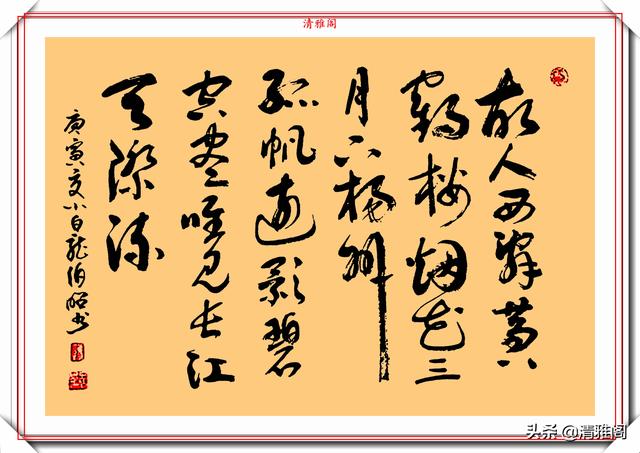 清雅阁
故人西辞黄
鹤楼烟花三
月下扬州
孤帆远影碧
空尽唯见长江
天際流
庚寅夏小白龍伯昭书
头条 @清雅阁